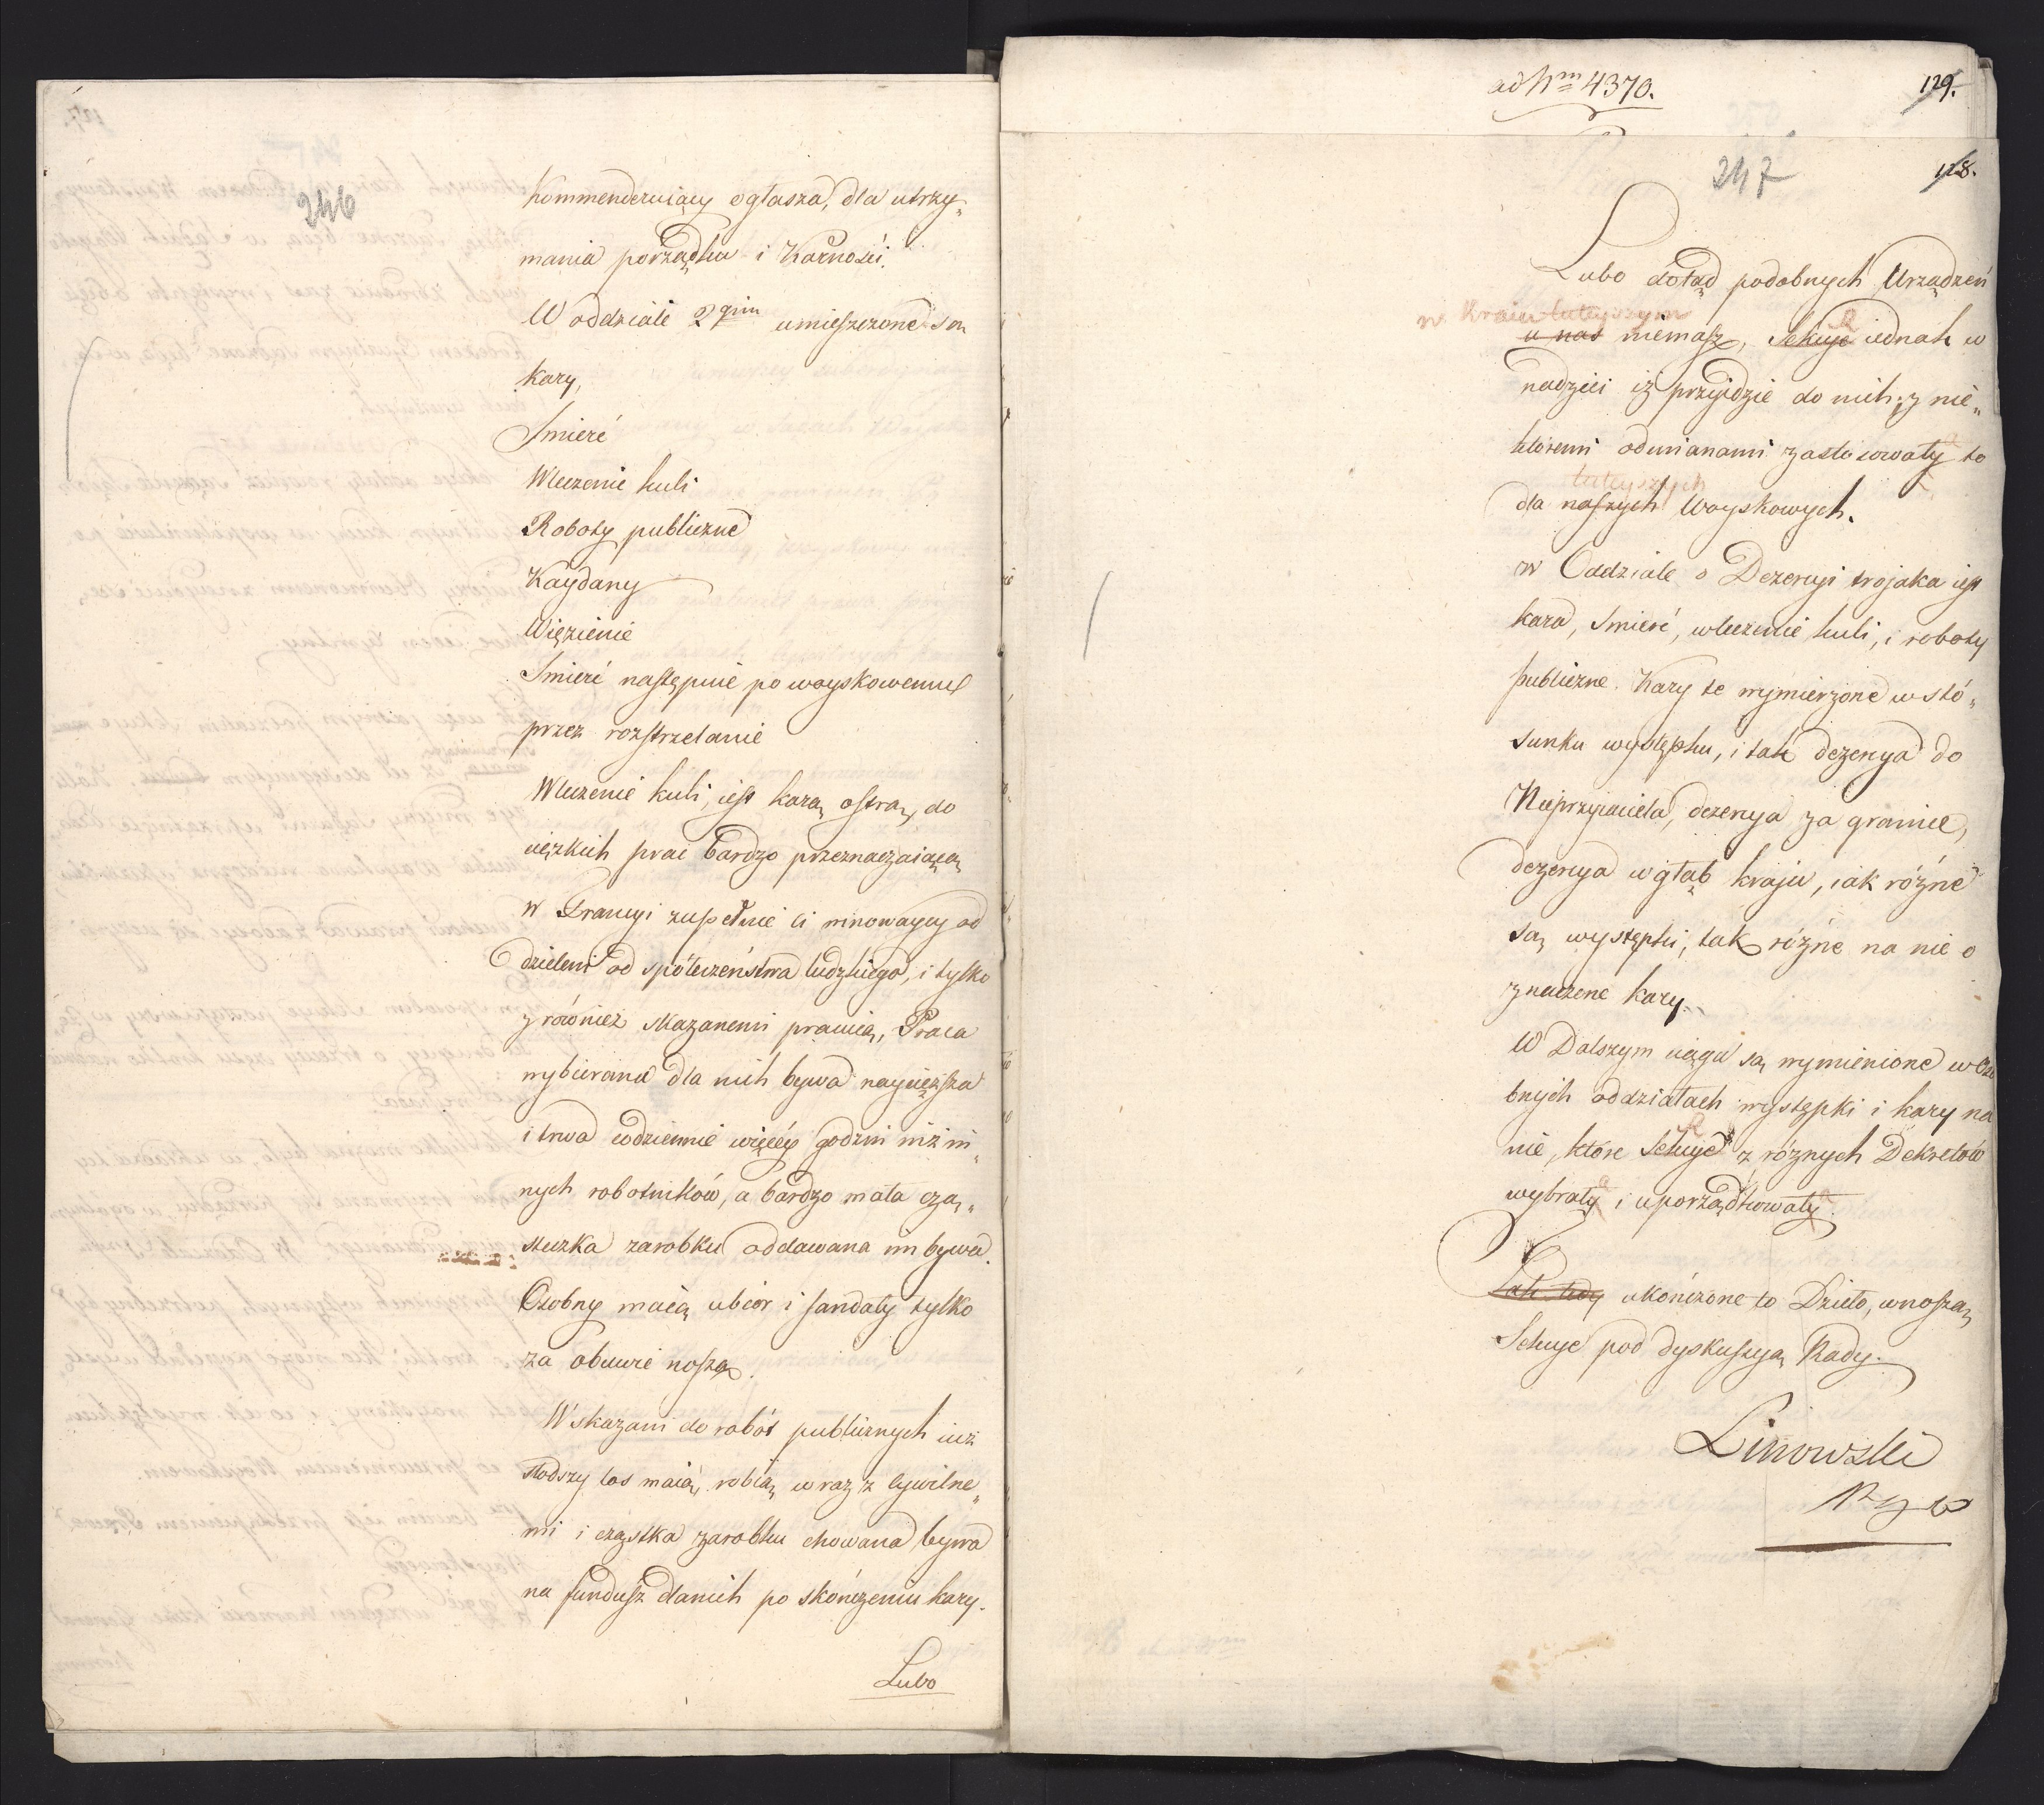 246
Kommenderuiący ogłasza, dla utrzy„
mania porządku i Karności.
W oddziale 2gim umieszczone są
kary,
Smierć
Wleczenie kuli
Roboty publiczne
Kaydany
Więzienie
Smierć następuie po woyskowemu
przez rozstrzelanie
Wleczenie kuli, iest karą ostrą, do
ciężkich prac bardzo przeznaczaiącą
w Francyi zupełnie ci winowaycy od
dzieleni od społeczeństwa ludzkiego, i tylko
z również skazanemi pracuią, Praca
wybierana dla nich bywa naycięższa
i trwa codziennie więcéy godzin niż in„
nych robotników, a bardzo mała czą„
steczka zarobku oddawana im bywa.
Osobny maią ubior i sandały tylko
za obuwie noszą.
Wskazani do robót publicznych iuż
słodszy los maią, robią wraz z cywilne„
mi i cząstka zarobku chowana bywa
na fundusz dla nich po skończeniu kary.
Lubo
ad Nm 4370.
129.
247
128.
Lubo dotąd podobnych Urządzeń
w Kraiu tuteyszym
u nas niemasz, Sekcye iednak w
nadziei iż przyjdzie do nich, z nie„
któremi odmianami zastosowały to
tuteyszych
dla naszych Woyskowych.
w Oddziale o Dezercyi trojaka iest
kara, Smierć, wleczenie kuli, i roboty
publiczne. Kary te wymierzone w stó„
sunku występku, i tak dezercya do
Nieprzyiaciela, dezercya za granice,
dezercya w głąb kraju, iak różne
są występki, tak różne na nie o
znaczene kary.
W Dalszym ciągu są wymienione w oso
bnych oddziałach występki i kary na
nie, które Sekcye z różnych Dekretów
wybrały i uporządkowały.
Tak tedy ukończone to Dzieło, wnoszą
Sekcye pod dyskussyą Rady.
Linowski